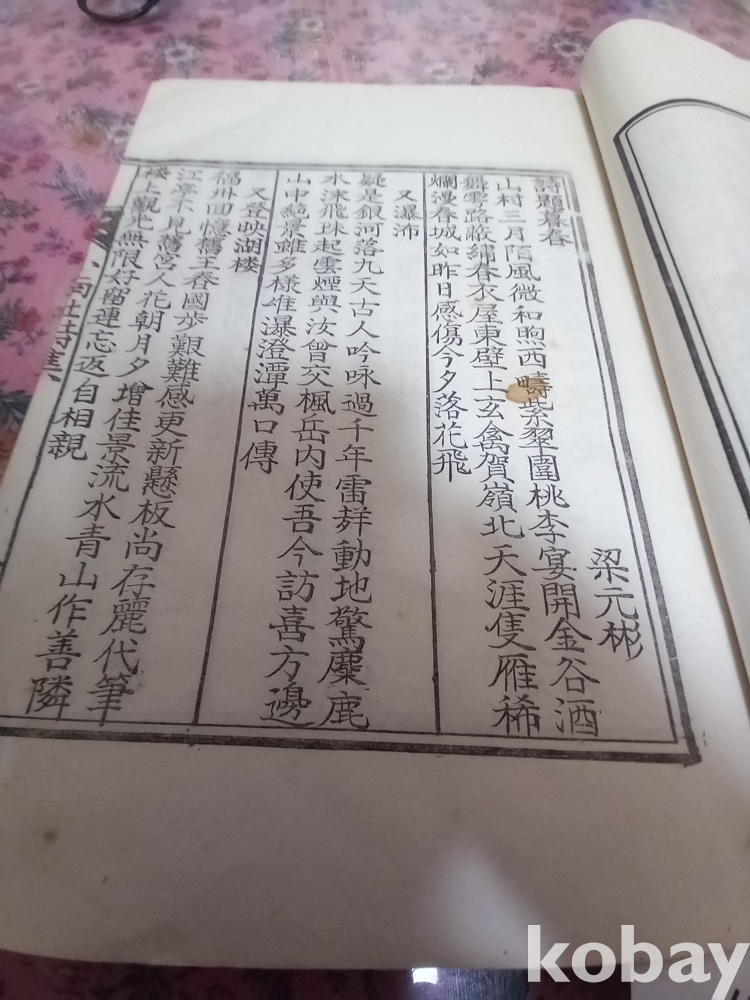 詩題暮春
梁元彬
山村三月陌風微和煦西疇紫翠圍桃李宴開金谷酒
雩路春衣屋東壁上玄禽賀嶺北天涯隻雁稀
爛漫春城如昨日感傷今夕落花飛
又瀑沛
疑是銀河落九天古人吟咏過千年雷聲動地驚麋鹿
水沫飛珠起雲煙與汝曾交楓岳内使吾今訪喜方邊
山中絶景雖多様雄瀑澄潭萬口傳
又登映湖楼
福州回憶舊王春國步艱難感更新懸板尚存麗代筆
江亭不見舊宮人花朝月夕增佳景流水青山作善隣
楼上觀光無限好留連忘返自相親
詩集
kobay